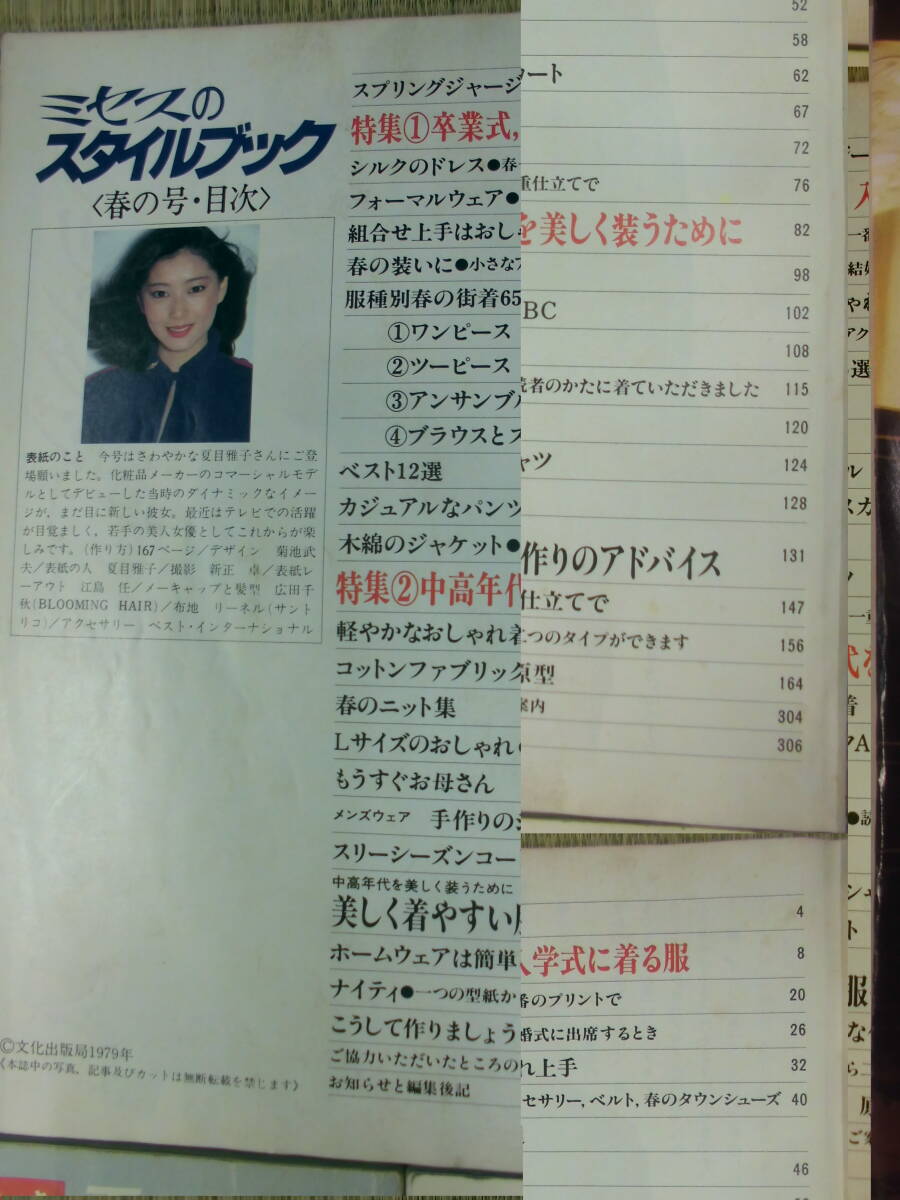 ミセスの
スタイルブック
〈春の号・目次〉
表紙のこと 今号はさわやかな夏目雅子さんにご登
場願いました。化粧品メーカーのコマーシャルモデ
ルとしてデビューした当時のダイナミックなイメー
ジが、まだ目に新しい彼女。最近はテレビでの活躍
が目覚ましく、若手の美人女優としてこれからが楽
しみです。〈作り方〉167ページ/デザイン 菊池武
夫/表紙の人 夏目雅子/撮影 新正 卓/表紙レ
ーアウト 江島 任/メーキャップと髪型 広田千
秋(BLOOMING HAIR)/布地 リーネル(サント
リコ)/アクセサリー ベスト・インターナショナル
©文化出版局1979年
《本誌中の写真、記事及びカットは無断転載を禁じます》
スプリングジャージ
特集①卒業式,
シルクのドレス●春
フォーマルウェア●
組合せ上手はおし
春の装いに●小さな
服種別春の街着65
①ワンピース
②ツーピース
③アンサンブル
④ブラウスと
ベスト12選
カジュアルなパンツ
木綿のジャケット●
特集②中高年代
軽やかなおしゃれ着
コットンファブリック
春のニット集
Lサイズのおしゃれ
もうすぐお母さん
メンズウェア 手作りの
スリーシーズンコー
中高年代を美しく装うために
美しく着やすい
ホームウェアは簡単
ナイティ●一つの型紙か
こうして作りましょう
ご協力いただいたところの
お知らせと編集後記
52
58
ート 62
67
72
重仕立てで 76
を美しく装うために 82
98
BC 102
108
読者のかたに着ていただきました 115
120
ャツ 124
128
作りのアドバイス 131
仕立てで 147
二つのタイプができます 156
原型 164
案内 304
306
4
入学式に着る服 8
番のプリントで 20
婚式に出席するとき 26
れ上手 32
セサリー,ベルト,春のタウンシューズ 40
46